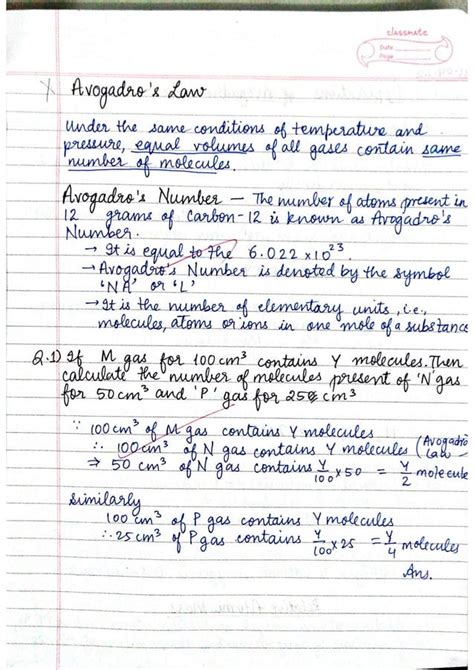 classmate
Date
Page
X Avogadro's Law
Under the same conditions of temperature and
pressure, equal volumes of all gases contain same
number of molecules.
Avogadro's Number — The number of atoms present in
12 grams of Carbon-12 is known as Avogadro's
Number.
→ It is equal to the 6.022 × 10²³.
→ Avogadro's Number is denoted by the symbol
'NA' or 'L'
→ It is the number of elementary units, i.e.,
molecules, atoms or ions in one mole of a substance
Q.1) If M gas for 100 cm³ contains Y molecules. Then
calculate the number of molecules present of 'N' gas
for 50 cm³ and 'P' gas for 25 cm³
∵ 100 cm³ of M gas contains Y molecules
∴ 100 cm³ of N gas contains Y molecules (Avogadro
Law
⇒ 50 cm³ of N gas contains Y/100 × 50 = Y/2 molecule
Similarly
100 cm³ of P gas contains Y molecules
∴ 25 cm³ of P gas contains Y/100 × 25 = Y/4 molecules
Ans.